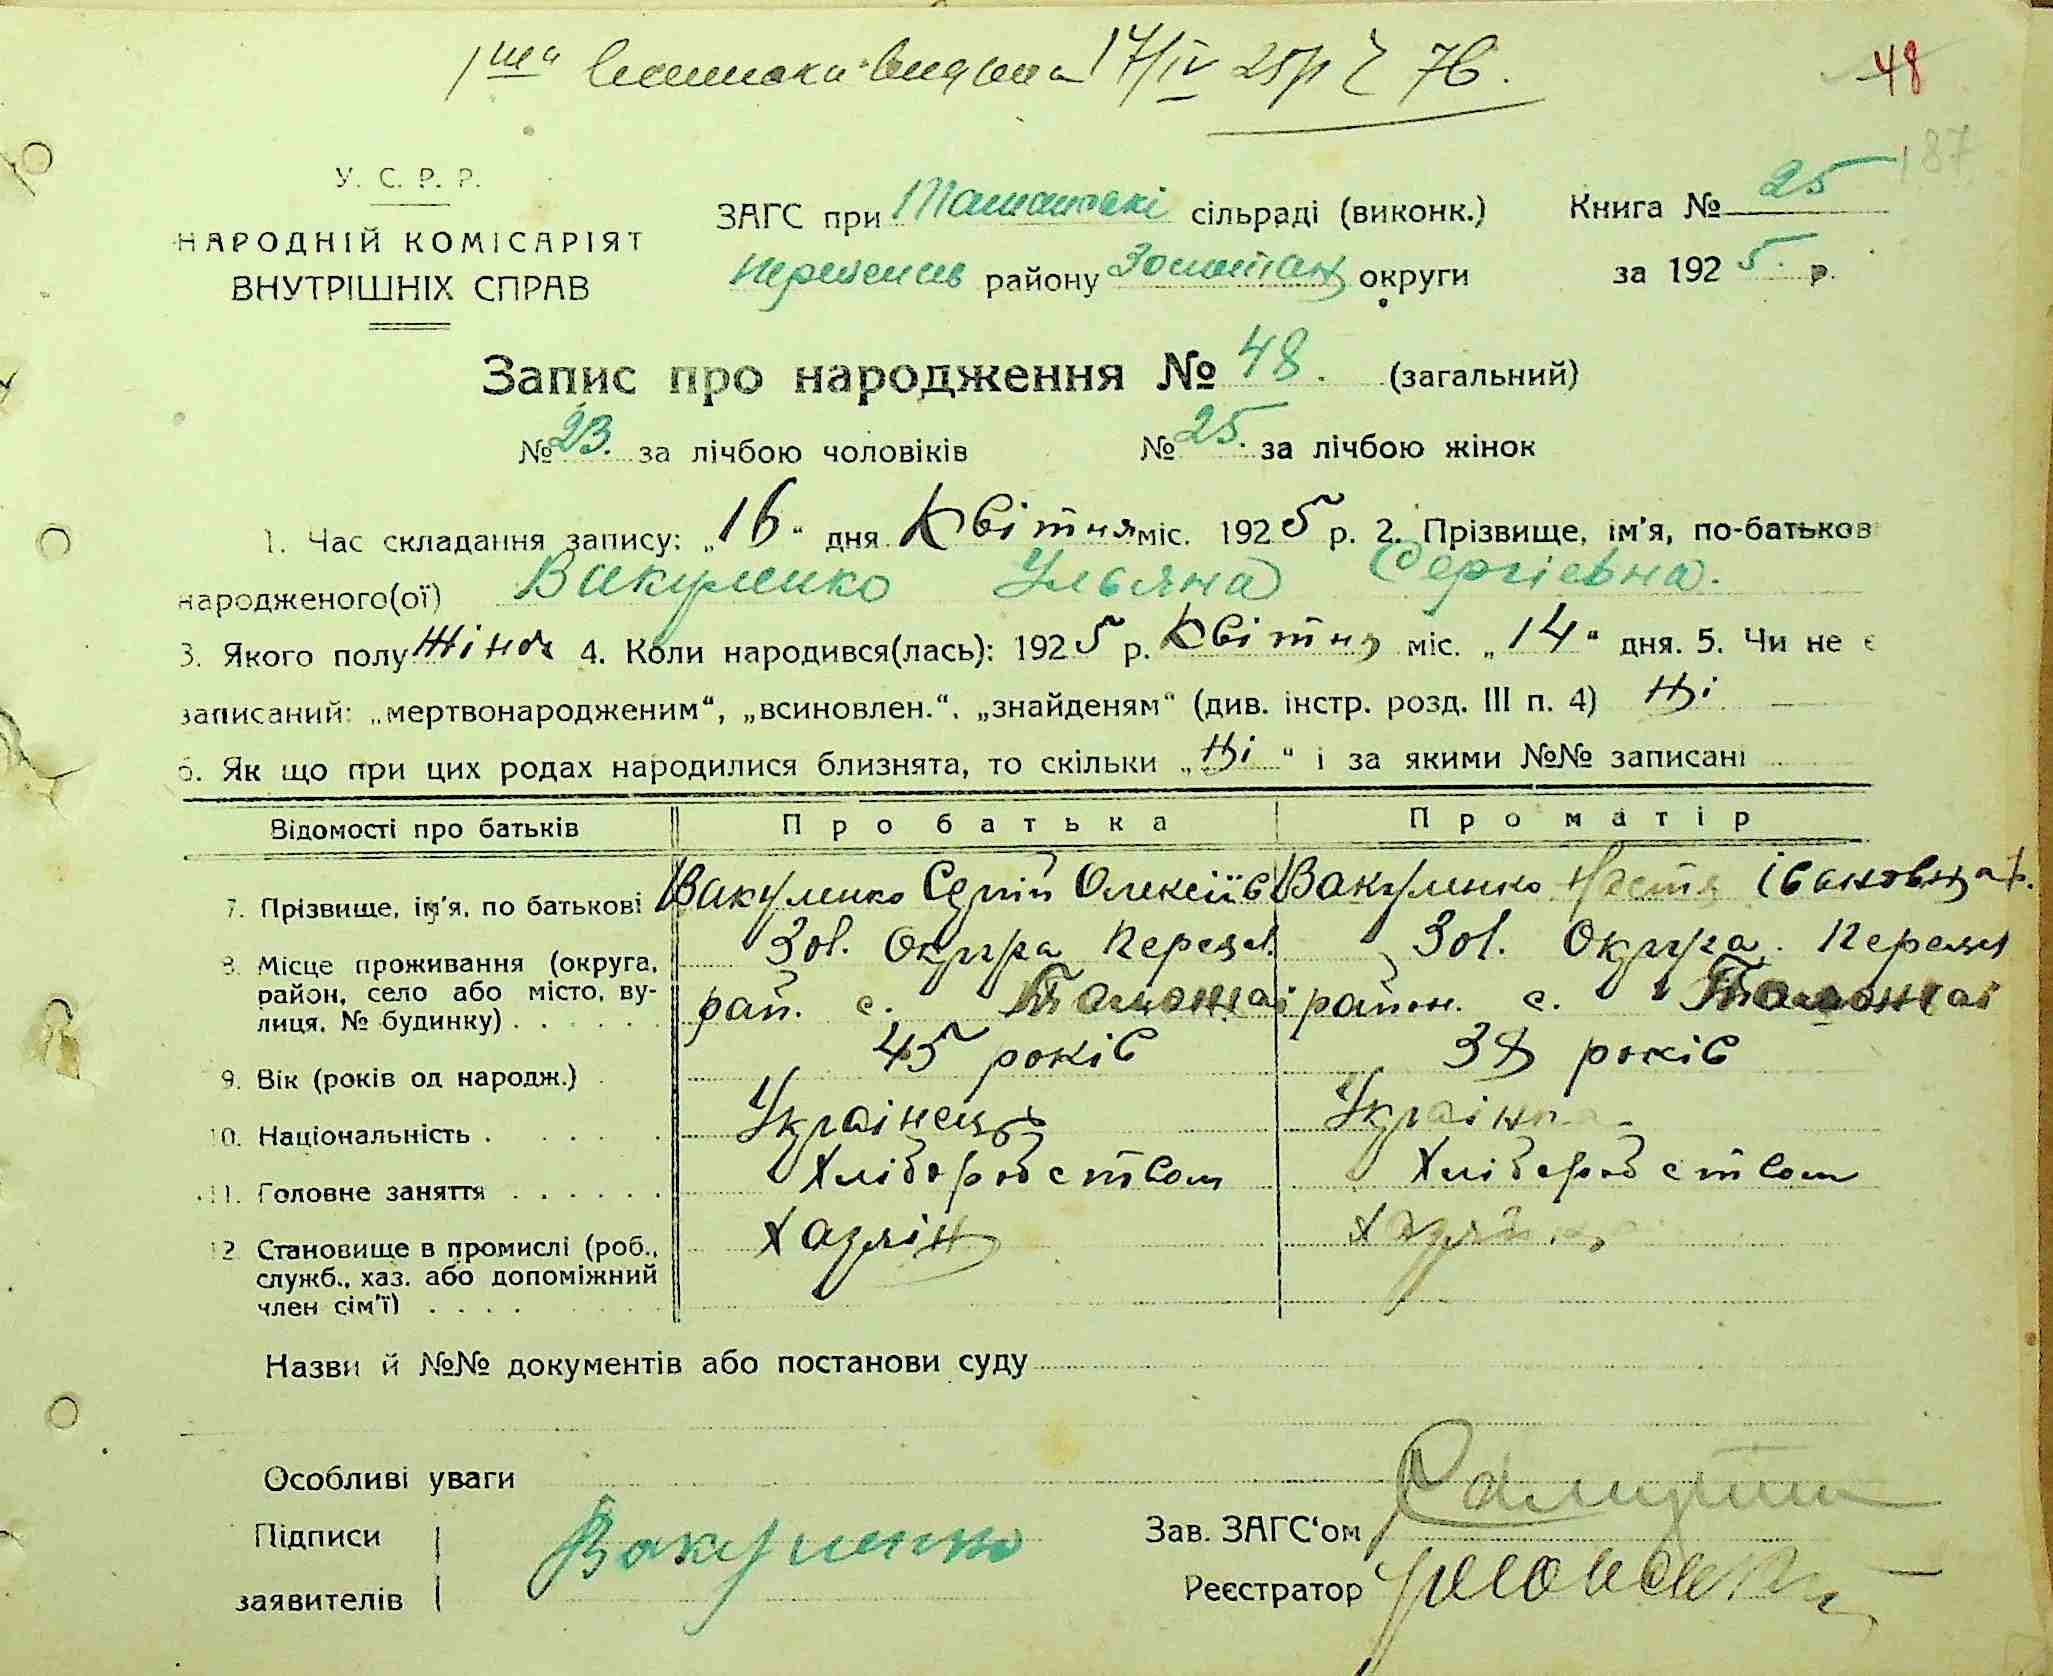 1ша виписка видана 17/IV 25р 76.
48
187
У. С. Р. Р.
НАРОДНІЙ КОМІСАРІЯТ
ВНУТРІШНІХ СПРАВ
ЗАГС при сільраді (виконк.) Книга № 25
району Золотон округи за 1925 р.
Запис про народження № 48. (загальний)
№ 23. за лічбою чоловіків № 25. за лічбою жінок
1. Час складання запису: „16“ дня Квітня міс. 1925 р. 2. Прізвище, ім'я, по-батьков
народженого(ої) Вакуленко Ульяна Сергіевна.
3. Якого полу Жіноч 4. Коли народився(лась): 1925 р. Квітня міс. „14“ дня. 5. Чи не є
записаний: „мертвонародженим“, „всиновлен.“, „знайденям“ (див. інстр. розд. III п. 4) Ні
6. Як що при цих родах народилися близнята, то скільки „Ні“ і за якими №№ записані
Відомості про батьків Про батька Про матір
7. Прізвище, ім'я, по батькові Вакуленко Сергій Олексіїв Вакуленко Настя Івановна
8. Місце проживання (округа, Зол. Округа Переял. Зол. Округа. Переял
район, село або місто, ву- рай. с. район. с.
лиця, № будинку)
9. Вік (років од народж.) 45 років 38 років
10. Національність Українець Українка
11. Головне заняття Хліборобством Хліборобством
12. Становище в промислі (роб., Хазяїн Хазяйка
служб., хаз. або допоміжний
член сім'ї)
Назви й №№ документів або постанови суду
Особливі уваги
Підписи Вакуленко Зав. ЗАГС'ом
заявителів Реєстратор